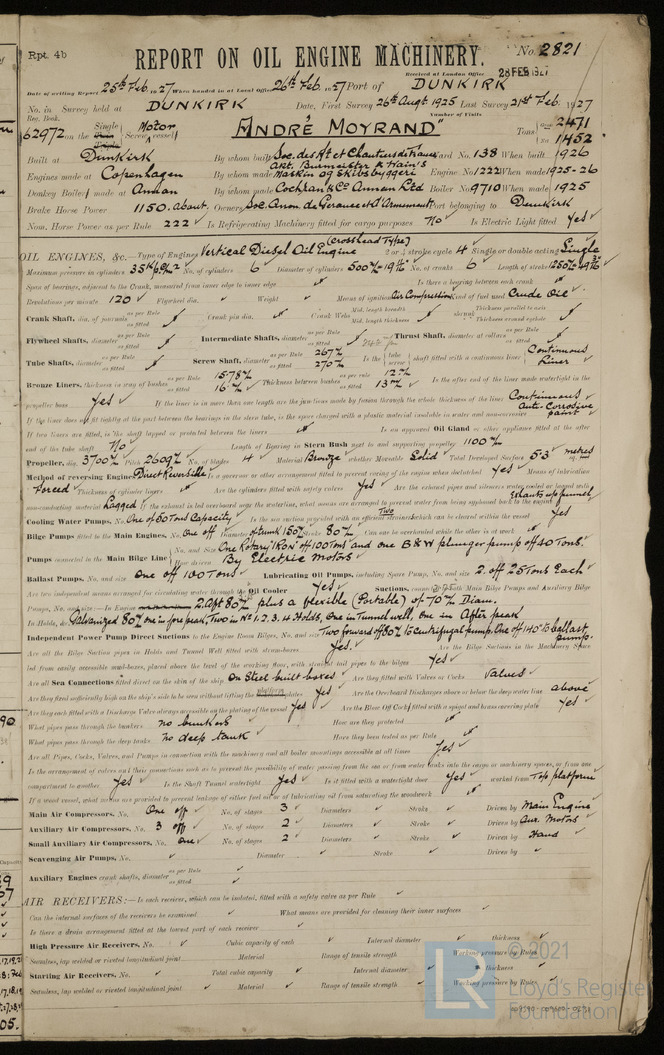 Rpt. 4b
REPORT ON OIL ENGINE MACHINERY.
No. 2821
Received at London Office 28 FEB 1927
Date of writing Report 25th Feb. 1927 When handed in at Local Office 26th Feb. 1927 Port of DUNKIRK
No. in Survey held at DUNKIRK Date, First Survey 26th Augt 1925 Last Survey 21st Feb. 1927
Reg. Book. Number of Visits
62972 on the Single Screw vessel Motor "ANDRÉ MOYRAND" Tons Gross 2471 Net 1452
Built at Dunkirk By whom built Soc. des At et Chantiers de France Yard No. 138 When built 1926
Engines made at Copenhagen By whom made Akt. Burmeister & Wain's Maskin og Skibsbyggeri Engine No. 1222 When made 1925-26
Donkey Boilers made at Annan By whom made Cochran & Co Annan Ltd Boiler No. 9710 When made 1925
Brake Horse Power 1150. about. Owners Soc. Anon. de Gerance et d'Armement Port belonging to Dunkirk
Nom. Horse Power as per Rule 222 Is Refrigerating Machinery fitted for cargo purposes No Is Electric Light fitted Yes
OIL ENGINES, &c.—Type of Engines Vertical Diesel Oil Engine (Crosshead Type) 2 or 4 stroke cycle 4 Single or double acting Single
Maximum pressure in cylinders 35 No. of cylinders 6 Diameter of cylinders 500 No. of cranks 6 Length of stroke
Span of bearings, adjacent to the Crank, measured from inner edge to inner edge Is there a bearing between each crank
Revolutions per minute 120 Flywheel dia. Weight Means of ignition Air Compression Kind of fuel used Crude Oil
Crank Shaft, dia. of journals as per Rule as fitted Crank pin dia. Crank Webs Mid. length breadth Mid. length thickness shrunk Thickness parallel to axis Thickness around eyehole
Flywheel Shafts, diameter as per Rule as fitted Intermediate Shafts, diameter as per Rule as fitted Thrust Shaft, diameter at collars as per Rule as fitted
Tube Shafts, diameter as per Rule as fitted Screw Shaft, diameter as per Rule 267 as fitted 270 Is the tube screw shaft fitted with a continuous liner Continuous Liner
Bronze Liners, thickness in way of bushes as per Rule 15.78 as fitted 16 Thickness between bushes as per Rule 12 as fitted 13 Is the after end of the liner made watertight in the
propeller boss Yes If the liner is in more than one length are the junctions made by fusion through the whole thickness of the liner Continuous
If the liner does not fit tightly at the part between the bearings in the stern tube, is the space charged with a plastic material insoluble in water and non-corrosive Anti-Corrosive paint
If two liners are fitted, is the shaft lapped or protected between the liners Is an approved Oil Gland or other appliance fitted at the after
end of the tube shaft No Length of Bearing in Stern Bush next to and supporting propeller 1100
Propeller, dia. 3700 Pitch 2609 No. of blades 4 Material Bronze whether Moveable Solid Total Developed Surface 5.3 metres
Method of reversing Engines Direct Reversible Is a governor or other arrangement fitted to prevent racing of the engine when declutched Yes Means of lubrication
Forced Thickness of cylinder liners Are the cylinders fitted with safety valves Yes Are the exhaust pipes and silencers water cooled or lagged with
non-conducting material Lagged If the exhaust is led overboard near the waterline, what means are arranged to prevent water being syphoned back to the engine Exhausts up funnel
Cooling Water Pumps, No. One of 60 Tons Capacity Is the sea suction provided with an efficient strainer which can be cleared within the vessel Two Yes
Bilge Pumps fitted to the Main Engines, No. One off Diameter of trunk 150 Stroke 80 Can one be overhauled while the other is at work
Pumps connected to the Main Bilge Line No. and Size One Rotary "IRON" off 100 Tons and one B&W plunger pump off 40 Tons. How driven By Electric Motors
Ballast Pumps, No. and size One off 100 Tons Lubricating Oil Pumps, including Spare Pump, No. and size 2. off 25 Tons Each
Are two independent means arranged for circulating water through the Oil Cooler Yes Suctions, connected to both Main Bilge Pumps and Auxiliary Bilge
Pumps, No. and size:—In Engine 2. Aft 80 plus a flexible (Portable) of 70 Diam.
In Holds, &c. Galvanized 80 one in fore peak, Two in Nos 1, 2, 3, 4 Holds, One in Tunnel well, one in After peak
Independent Power Pump Direct Suctions to the Engine Room Bilges, No. and size Two forward off 80 to Centrifugal pump. One off 140 to ballast pump.
Are all the Bilge Suction pipes in Holds and Tunnel Well fitted with strum-boxes Yes. Are the Bilge Suctions in the Machinery Space
led from easily accessible mud-boxes, placed above the level of the working floor, with straight tail pipes to the bilges Yes
Are all Sea Connections fitted direct on the skin of the ship On Steel built boxes Are they fitted with Valves or Cocks Valves
Are they fixed sufficiently high on the ship's side to be seen without lifting the platform plates Yes Are the Overboard Discharges above or below the deep water line above
Are they each fitted with a Discharge Valve always accessible on the plating of the vessel Yes Are the Blow Off Cocks fitted with a spigot and brass covering plate Yes
What pipes pass through the bunkers no bunkers How are they protected
What pipes pass through the deep tanks no deep tank Have they been tested as per Rule
Are all Pipes, Cocks, Valves, and Pumps in connection with the machinery and all boiler mountings accessible at all times Yes
Is the arrangement of valves and their connections such as to prevent the possibility of water passing from the sea or from water tanks into the cargo or machinery spaces, or from one
compartment to another Yes Is the Shaft Tunnel watertight Yes Is it fitted with a watertight door Yes worked from Top platform
If a wood vessel, what means are provided to prevent leakage of either fuel oil or of lubricating oil from saturating the woodwork
Main Air Compressors, No. One off No. of stages 3 Diameters Stroke Driven by Main Engine
Auxiliary Air Compressors, No. 3 off No. of stages 2 Diameters Stroke Driven by Aux. Motors
Small Auxiliary Air Compressors, No. one No. of stages 2 Diameters Stroke Driven by Hand
Scavenging Air Pumps, No. Diameter Stroke Driven by
Auxiliary Engines crank shafts, diameter as per Rule as fitted
AIR RECEIVERS:—Is each receiver, which can be isolated, fitted with a safety valve as per Rule
Can the internal surfaces of the receivers be examined What means are provided for cleaning their inner surfaces
Is there a drain arrangement fitted at the lowest part of each receiver
High Pressure Air Receivers, No. Cubic capacity of each Internal diameter thickness
Seamless, lap welded or riveted longitudinal joint Material Range of tensile strength Working pressure by Rules
Starting Air Receivers, No. Total cubic capacity Internal diameter thickness
Seamless, lap welded or riveted longitudinal joint Material Range of tensile strength Working pressure by Rules
© 2021
Lloyd's Register
Foundation